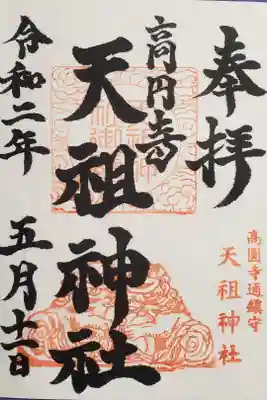 奉拝
高円寺
天祖神社
令和二年 五月十一日
高圓寺通鎮守
天祖神社